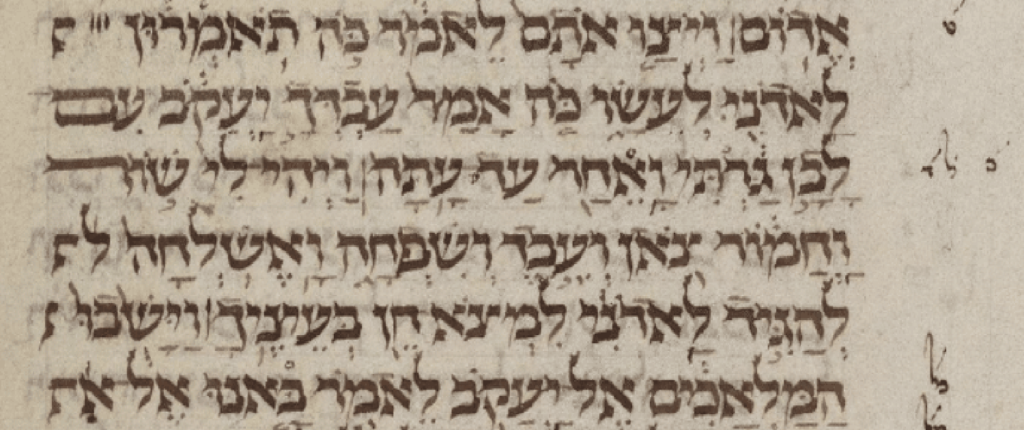 אֱדוֹם׃ וַיְצַו אֹתָם לֵאמֹר כֹּה תֹאמְרוּן
לַאדֹנִי לְעֵשָׂו כֹּה אָמַר עַבְדְּךָ יַעֲקֹב עִם
לָבָן גַּרְתִּי וָאֵחַר עַד עָתָּה׃ וַיְהִי לִי שׁוֹר
וַחֲמוֹר צֹאן וְעֶבֶד וְשִׁפְחָה וָאֶשְׁלְחָה
לְהַגִּיד לַאדֹנִי לִמְצֹא חֵן בְּעֵינֶיךָ׃ וַיָּשֻׁבוּ
הַמַּלְאָכִים אֶל יַעֲקֹב לֵאמֹר בָּאנוּ אֶל אַח